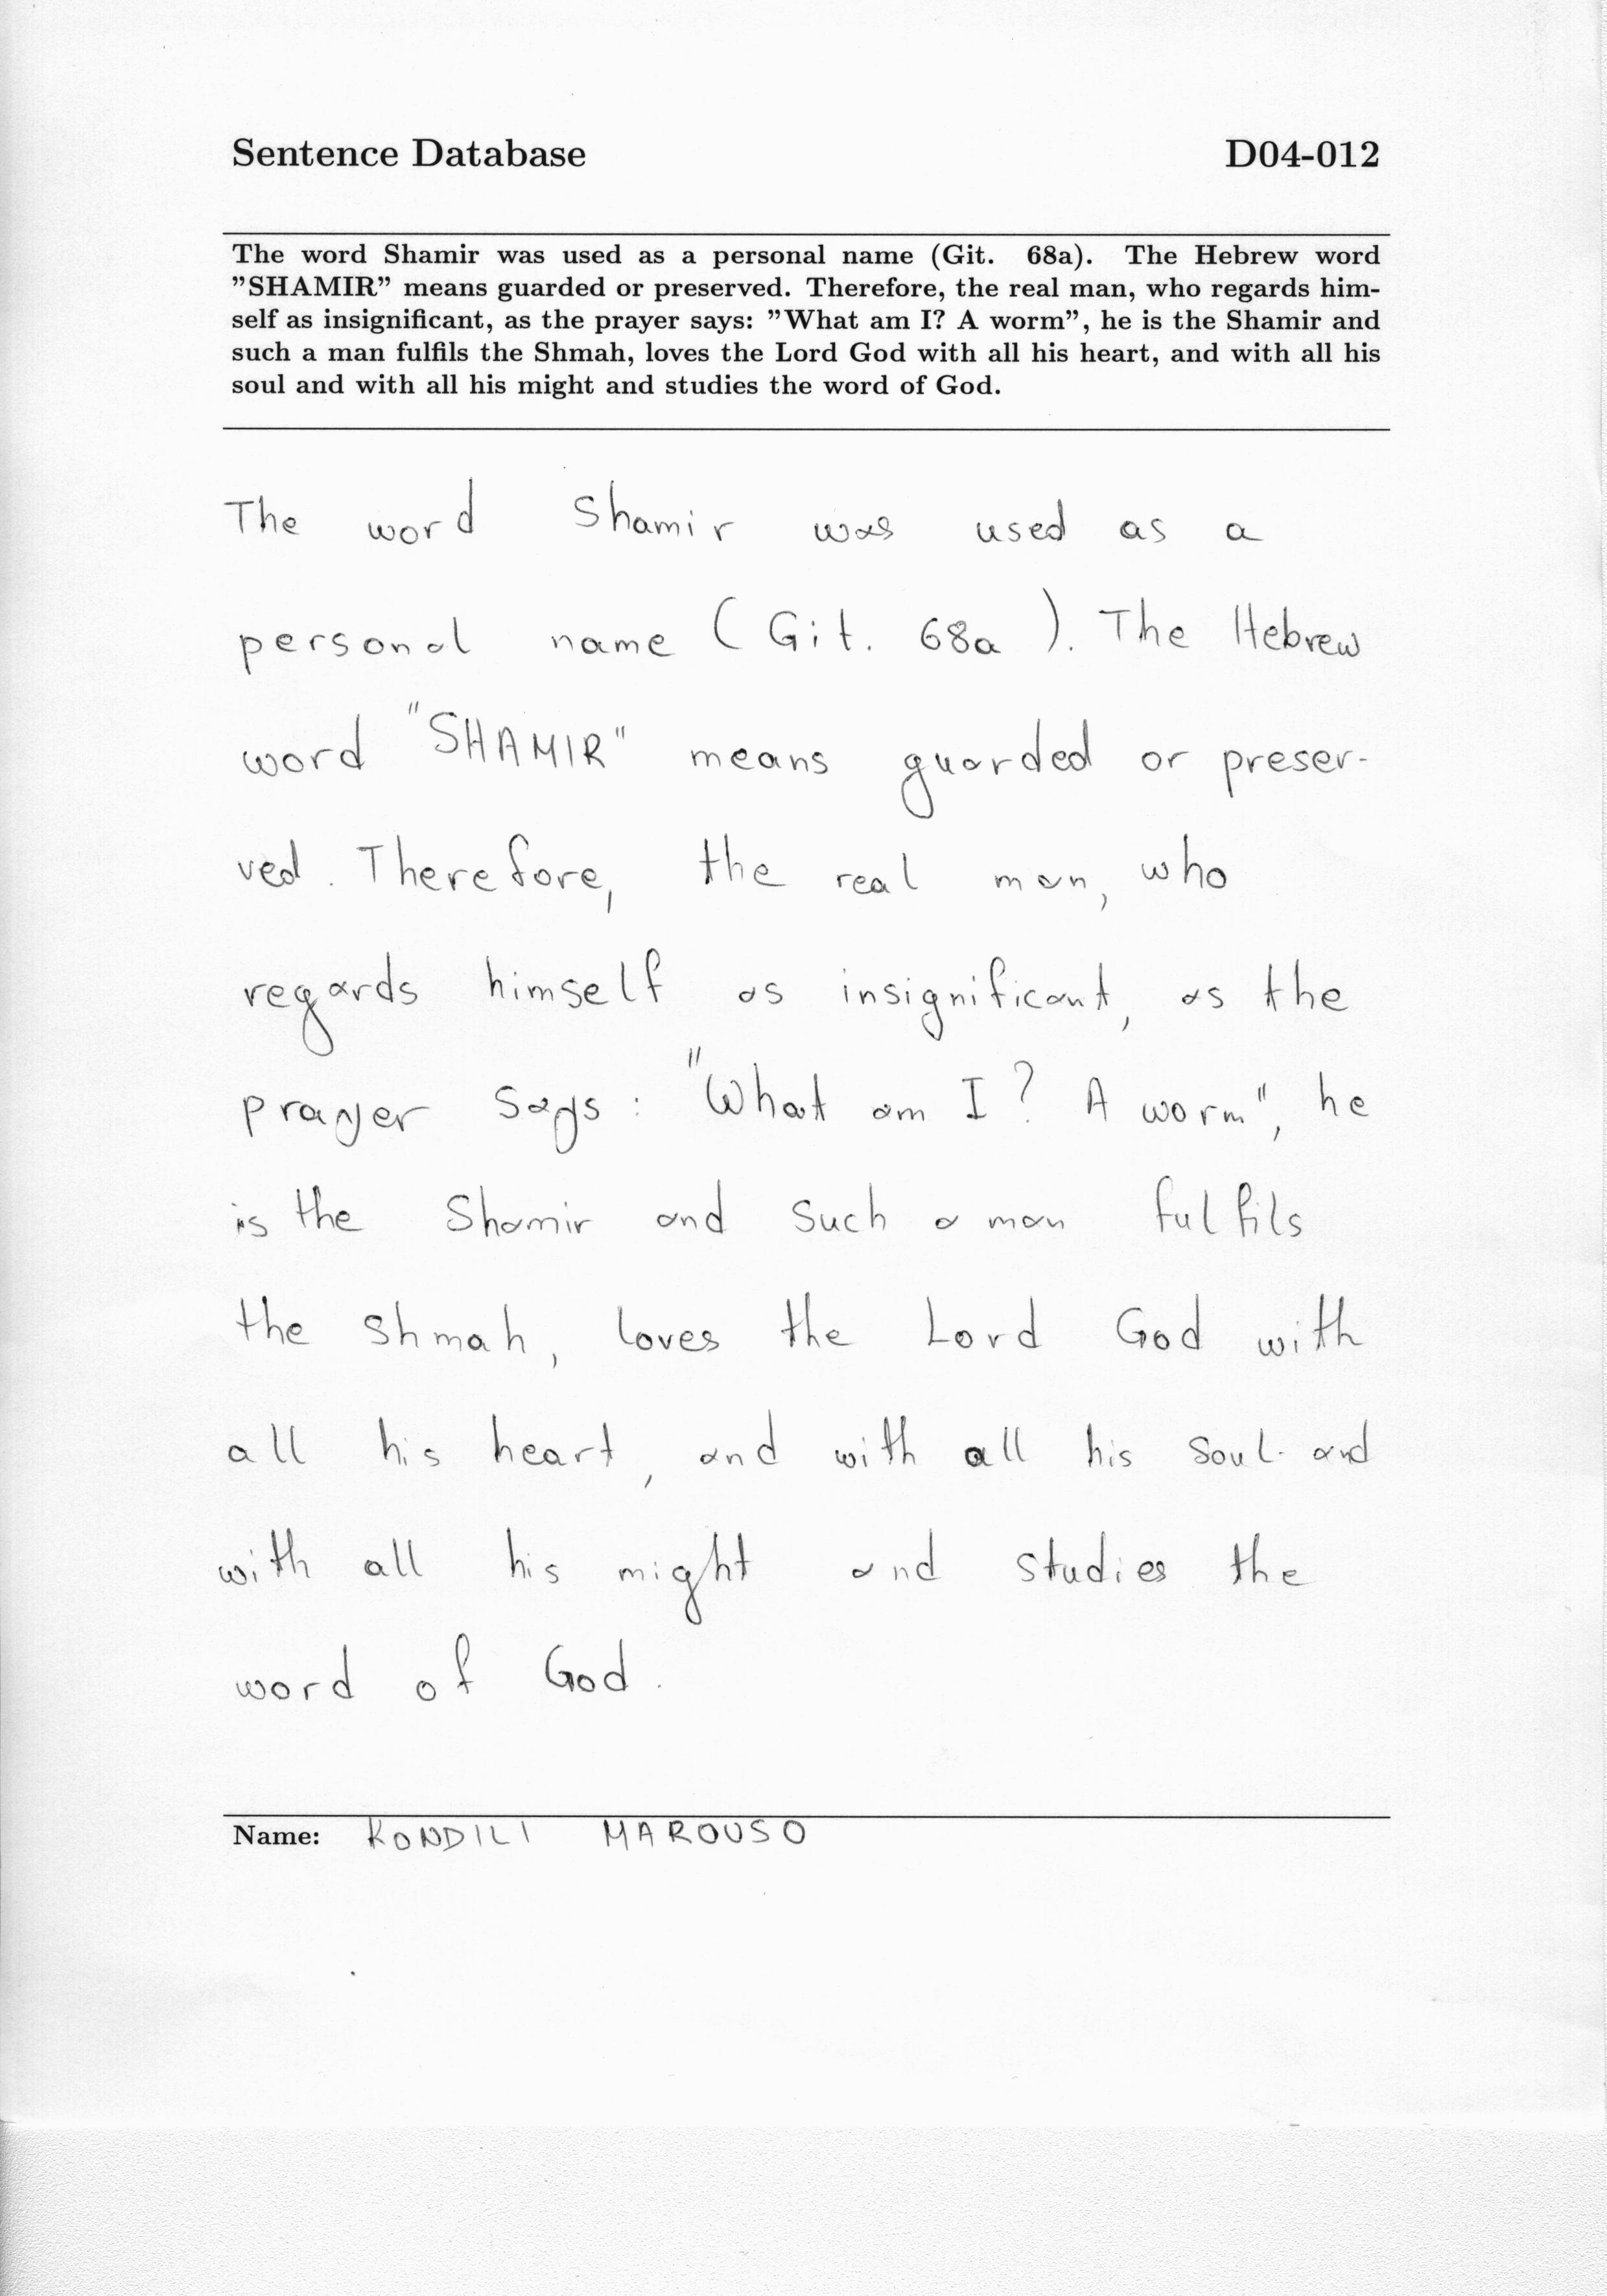 Sentence Database D04-012
The word Shamir was used as a personal name (Git. 68a). The Hebrew word
"SHAMIR" means guarded or preserved. Therefore, the real man, who regards him-
self as insignificant, as the prayer says: "What am I? A worm", he is the Shamir and
such a man fulfils the Shmah, loves the Lord God with all his heart, and with all his
soul and with all his might and studies the word of God.
The word Shamir was used as a
personal name (Git. 68a). The Hebrew
word "SHAMIR" means guarded or preser-
ved. Therefore, the real man, who
regards himself as insignificant, as the
prayer says: "What am I? A worm", he
is the Shamir and such a man fulfils
the Shmah, loves the Lord God with
all his heart, and with all his soul and
with all his might and studies the
word of God.
Name: KONDILI MAROUSO